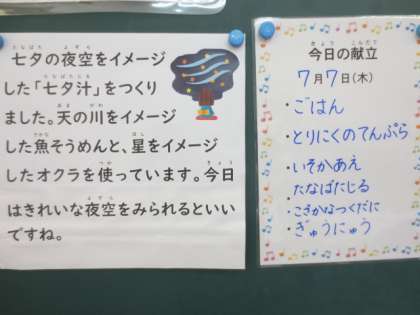 七夕の夜空をイメージ
した「七夕汁」をつくり
ました。天の川をイメージ
した魚そうめんと、星をイメージ
したオクラを使っています。今日
はきれいな夜空をみられるといい
ですね。
今日の献立
7月7日(木)
・ごはん
・とりにくのてんぷら
・いそかあえ
たなばたじる
・こざかなつくだに
・ぎゅうにゅう